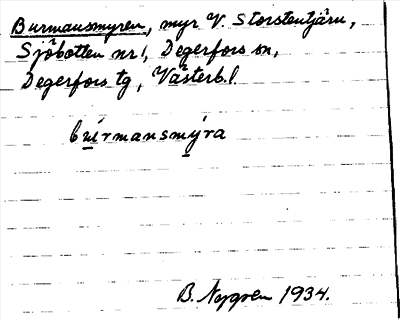 Burmansmyren, myr V. Storstentjärn,
Sjöbotten nr 1, Degerfors sn,
Degerfors tg, Västerb. l.
búrmansmýra
B. Nygren 1934.